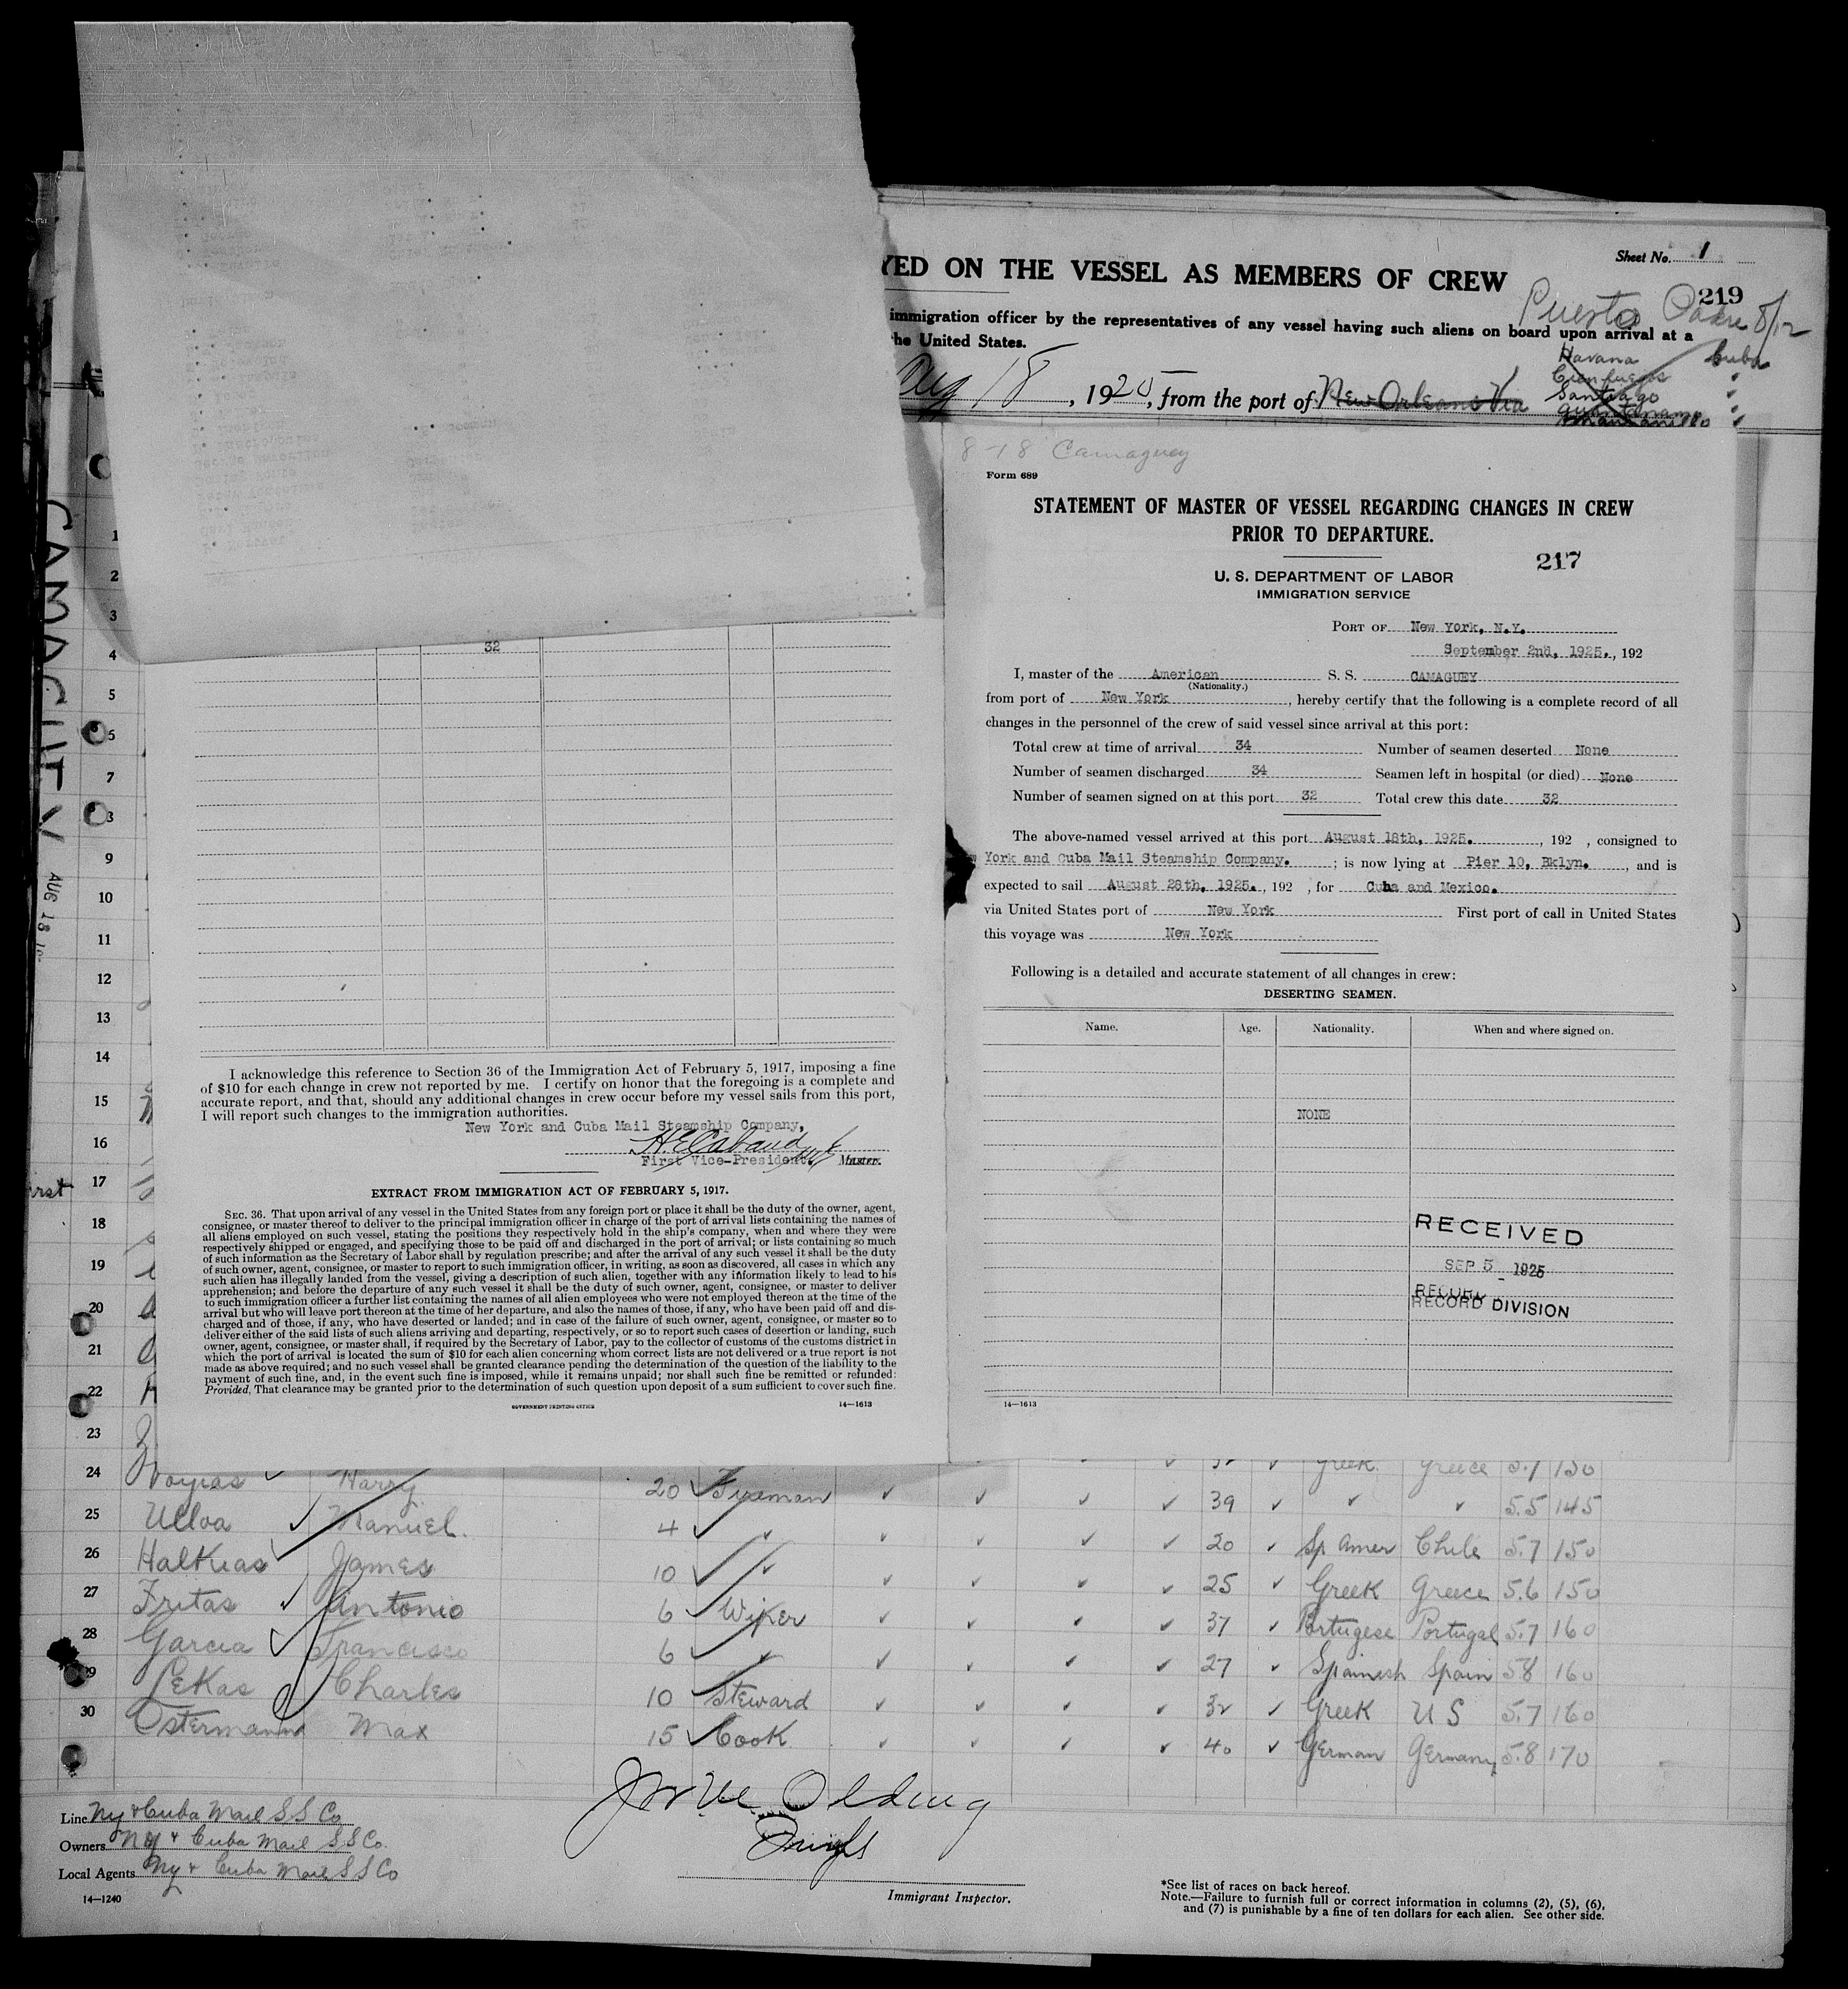 Sheet No. 1
YED ON THE VESSEL AS MEMBERS OF CREW
219
Puerto Padre 8/12
immigration officer by the representatives of any vessel having such aliens on board upon arrival at a
he United States.
Aug 18, 1925, from the port of New Orleans Via
Havana Cuba
Cienfuegos "
Santiago "
Guantanamo "
Manzanillo "
8-18 Camaguey
Form 689
STATEMENT OF MASTER OF VESSEL REGARDING CHANGES IN CREW
PRIOR TO DEPARTURE.
217
U. S. DEPARTMENT OF LABOR
IMMIGRATION SERVICE
PORT OF New York, N.Y.
September 2nd, 1925., 192
I, master of the American S. S. CAMAGUEY
(Nationality.)
from port of New York, hereby certify that the following is a complete record of all
changes in the personnel of the crew of said vessel since arrival at this port:
Total crew at time of arrival 34 Number of seamen deserted None
Number of seamen discharged 34 Seamen left in hospital (or died) None
Number of seamen signed on at this port 32 Total crew this date 32
The above-named vessel arrived at this port August 18th, 1925., 192 , consigned to
w York and Cuba Mail Steamship Company. ; is now lying at Pier 10, Bklyn. , and is
expected to sail August 28th, 1925., 192 , for Cuba and Mexico.
via United States port of New York First port of call in United States
this voyage was New York
Following is a detailed and accurate statement of all changes in crew:
DESERTING SEAMEN.
Name. Age. Nationality. When and where signed on.
NONE
RECEIVED
SEP 5 1925
RECORD DIVISION
14—1613
CAMAGUEY AUG 18
32
1
2
3
4
5
7
9
10
11
12
13
14
15
16
17
18
19
20
21
22
23
I acknowledge this reference to Section 36 of the Immigration Act of February 5, 1917, imposing a fine
of $10 for each change in crew not reported by me. I certify on honor that the foregoing is a complete and
accurate report, and that, should any additional changes in crew occur before my vessel sails from this port,
I will report such changes to the immigration authorities.
New York and Cuba Mail Steamship Company,
First Vice-President Master.
EXTRACT FROM IMMIGRATION ACT OF FEBRUARY 5, 1917.
SEC. 36. That upon arrival of any vessel in the United States from any foreign port or place it shall be the duty of the owner, agent,
consignee, or master thereof to deliver to the principal immigration officer in charge of the port of arrival lists containing the names of
all aliens employed on such vessel, stating the positions they respectively hold in the ship's company, when and where they were
respectively shipped or engaged, and specifying those to be paid off and discharged in the port of arrival; or lists containing so much
of such information as the Secretary of Labor shall by regulation prescribe; and after the arrival of any such vessel it shall be the duty
of such owner, agent, consignee, or master to report to such immigration officer, in writing, as soon as discovered, all cases in which any
such alien has illegally landed from the vessel, giving a description of such alien, together with any information likely to lead to his
apprehension; and before the departure of any such vessel it shall be the duty of such owner, agent, consignee, or master to deliver
to such immigration officer a further list containing the names of all alien employees who were not employed thereon at the time of the
arrival but who will leave port thereon at the time of her departure, and also the names of those, if any, who have been paid off and dis-
charged and of those, if any, who have deserted or landed; and in case of the failure of such owner, agent, consignee, or master so to
deliver either of the said lists of such aliens arriving and departing, respectively, or so to report such cases of desertion or landing, such
owner, agent, consignee, or master shall, if required by the Secretary of Labor, pay to the collector of customs of the customs district in
which the port of arrival is located the sum of $10 for each alien concerning whom correct lists are not delivered or a true report is not
made as above required; and no such vessel shall be granted clearance pending the determination of the question of the liability to the
payment of such fine, and, in the event such fine is imposed, while it remains unpaid; nor shall such fine be remitted or refunded:
Provided, That clearance may be granted prior to the determination of such question upon deposit of a sum sufficient to cover such fine.
GOVERNMENT PRINTING OFFICE 14—1613
Greek Greece 5.7 150
24 Harry 20 Fireman 39 5.5 145
25 Ulloa Manuel. 4 20 Sp. Amer Chile 5.7 150
26 Halkias James 10 25 Greek Greece 5.6 150
27 Fritas Antonio 6 Wiper 37 Portugese Portugal 5.7 160
28 Garcia Francisco 6 27 Spainish Spain 5.8 160
29 Lekas Charles 10 Steward 32 Greek U S 5.7 160
30 Ostermann Max 15 Cook 40 German Germany 5.8 170
Line Ny & Cuba Mail S S Co
Owners NY & Cuba Mail S S Co.
Local Agents Ny & Cuba Mail S S Co
14—1240
Immigrant Inspector.
*See list of races on back hereof.
Note.—Failure to furnish full or correct information in columns (2), (5), (6),
and (7) is punishable by a fine of ten dollars for each alien. See other side.